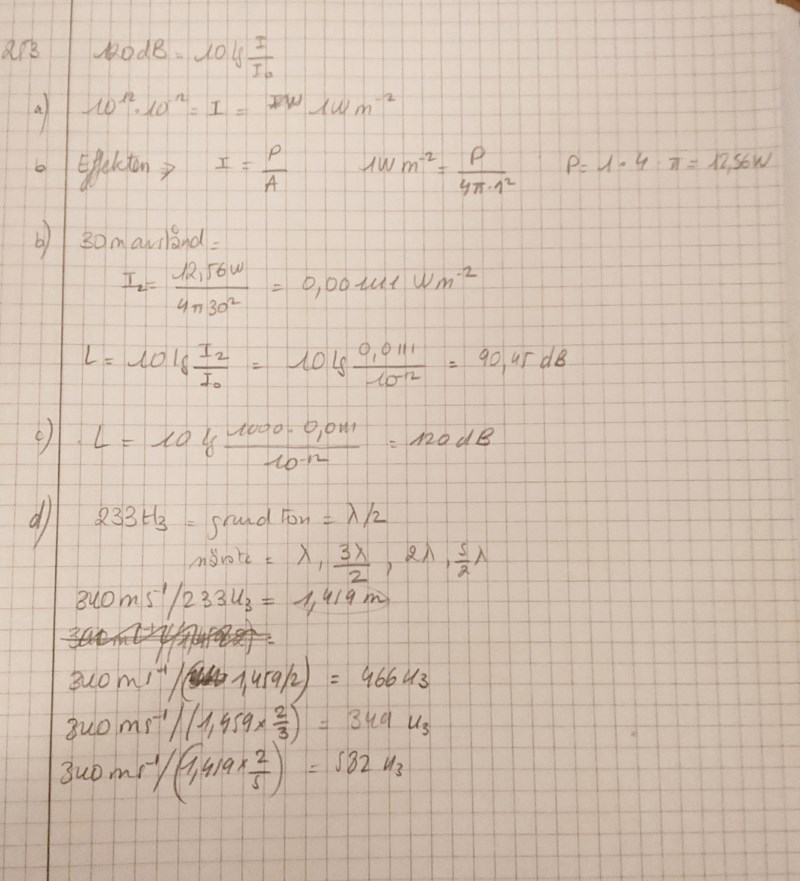 253 120 dB = 10 lg I/I₀
a) 10¹²·10⁻¹² = I = 1 W m⁻²
Effekten ⇒ I = P/A 1 W m⁻² = P/(4π·1²) P = 1·4·π = 12,56 W
b) 30 m avstånd =
I₂ = 12,56 W/(4π30²) = 0,00111 W m⁻²
L = 10 lg I₂/I₀ = 10 lg 0,0111/10⁻¹² = 90,45 dB
c) L = 10 lg 1000·0,0111/10⁻¹² = 120 dB
d) 233 Hz = grundton = λ/2
= λ, 3λ/2, 2λ, 5/2 λ
340 m s⁻¹/233 Hz = 1,459 m
340 m s⁻¹/(1,459/2) = 466 Hz
340 m s⁻¹/(1,459×2/3) = 349 Hz
340 m s⁻¹/(1,459×2/5) = 582 Hz